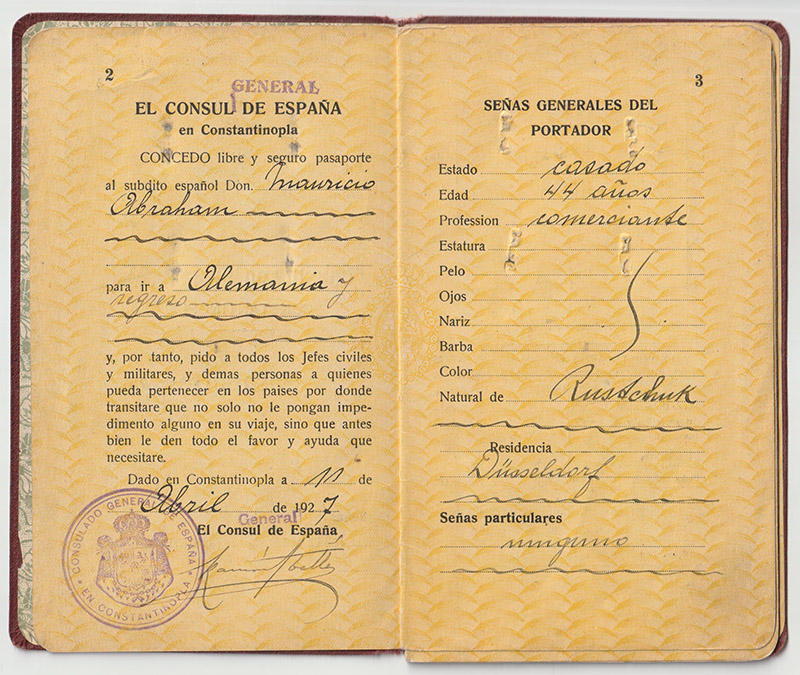 2
GENERAL
EL CONSUL DE ESPAÑA
en Constantinopla
CONCEDO libre y seguro pasaporte
al subdito español Don. Mauricio
Abraham
para ir a Alemania y
regreso
y, por tanto, pido a todos los Jefes civiles
y militares, y demas personas a quienes
pueda pertenecer en los paises por donde
transitare que no solo no le pongan impe-
dimento alguno en su viaje, sino que antes
bien le den todo el favor y ayuda que
necesitare.
Dado en Constantinopla a 11 de
Abril de 1927
General
El Consul de España
CONSULADO GENERAL DE ESPAÑA
EN CONSTANTINOPLA
3
SEÑAS GENERALES DEL
PORTADOR
Estado casado
Edad 44 años
Profession comerciante
Estatura
Pelo
Ojos
Nariz
Barba
Color
Natural de Rustchuk
Residencia
Düsseldorf
Señas particulares
ninguno